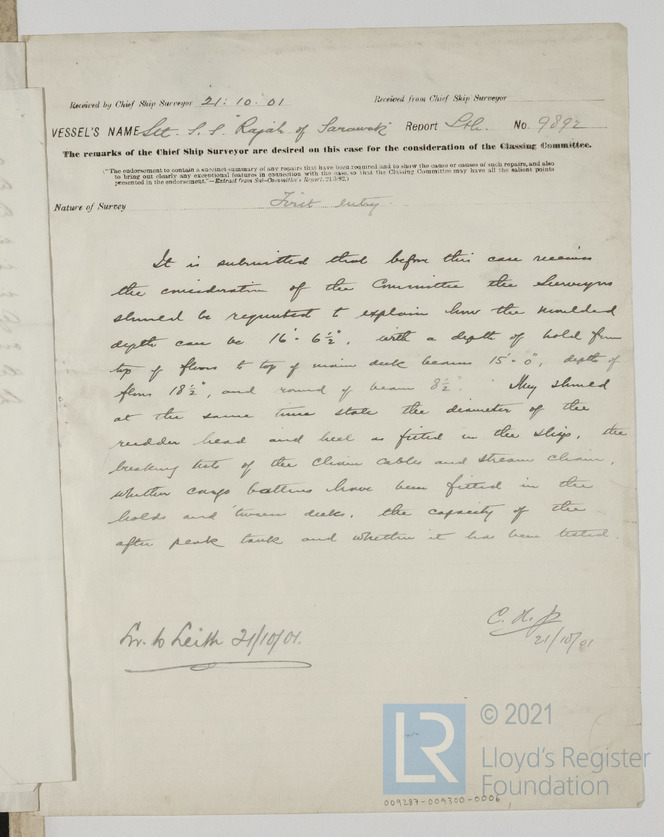 Received by Chief Ship Surveyor 21. 10. 01 Received from Chief Ship Surveyor
VESSEL'S NAME S.S. "Rajah of Sarawak Report Lth. No. 9892
The remarks of the Chief Ship Surveyor are desired on this case for the consideration of the Classing Committee.
("The endorsement to contain a succinct summary of any repairs that have been required and to show the cause or causes of such repairs, and also
to bring out clearly any exceptional features in connection with the case, so that the Classing Committee may have all the salient points
presented in the endorsement."—Extract from Sub-Committee's Report, 21/3/92.)
Nature of Survey First entry
It is submitted that before this case receives
the consideration of the Committee the Surveyors
should be requested to explain how the moulded
depth can be 16'-6½", with a depth of hold from
top of floors to top of main deck beams 15'-0", depth of
floors 18½", and round of beam 8½". They should
at the same time state the diameter of the
rudder head and heel as fitted in the ship, the
breaking tests of the chain cables and stream chain,
whether cargo battens have been fitted in the
holds and 'tween decks, the capacity of the
after peak tank and whether it has been tested.
C. H. J.
21/10/01
Lr. to Leith 21/10/01.
LR © 2021
Lloyd's Register
Foundation
009287-009300-0006